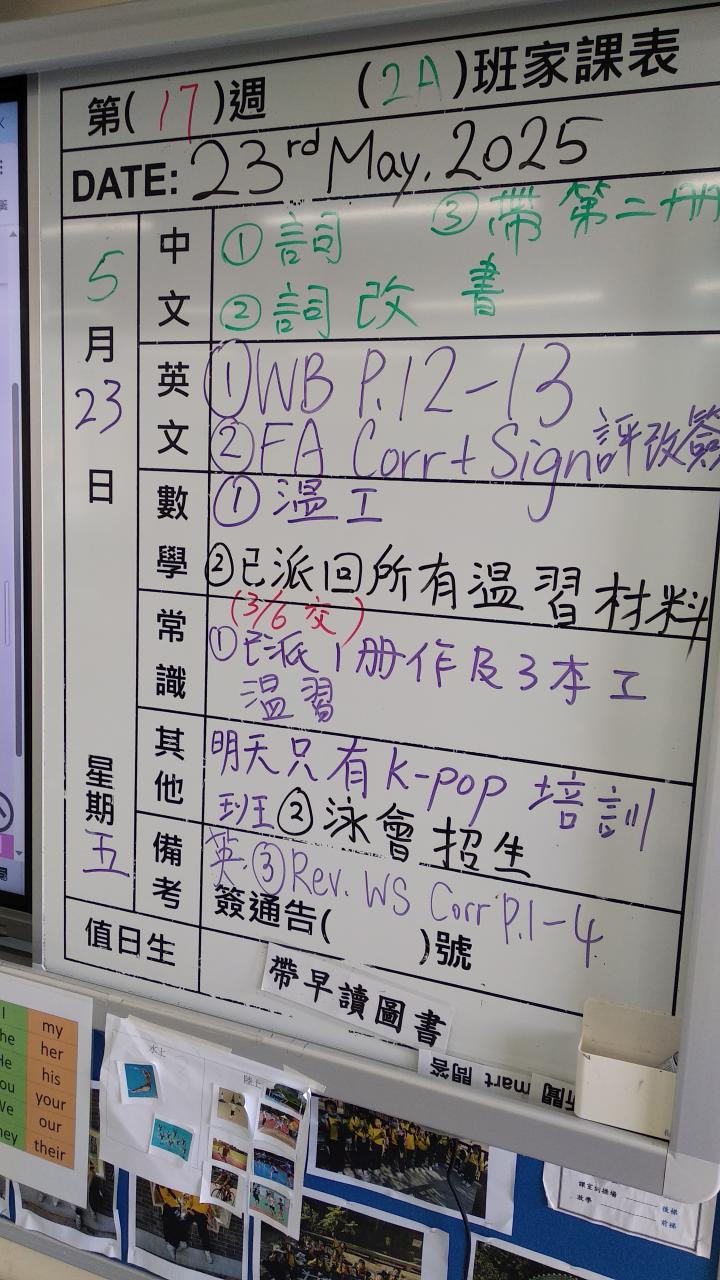 第(17)週 (2A)班家課表
DATE: 23rd May, 2025
5月23日
星期五
中文
①詞 ③帶第二冊
②詞改 書
英文
①WB P.12-13
②FA Corr+ Sign評改簽
數學
①溫工
②已派回所有溫習材料
常識
(3/6 交)
①已派1冊作及3本工
溫習
其他
明天只有K-pop 培訓
班②泳會招生
備考
英③Rev. WS Corr P.1-4
簽通告( )號
值日生
帶早讀圖書
mart 問答
my
her
his
your
our
their
水上
陸上